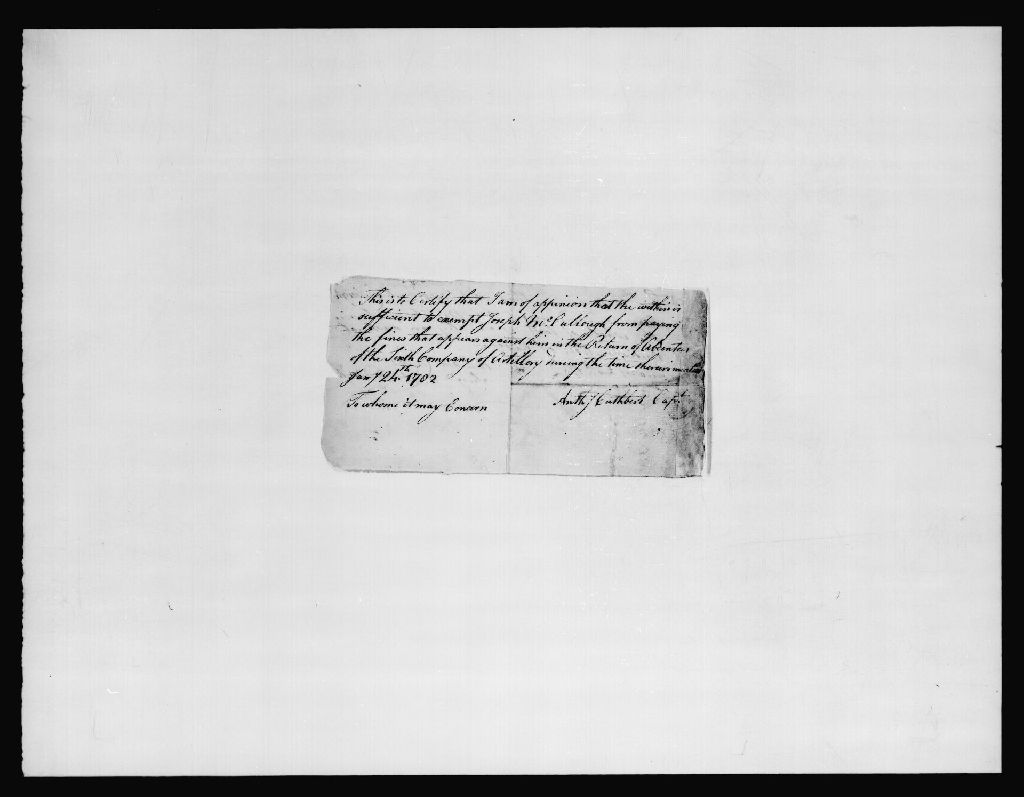 This is to Certify that I am of appinion that the within is
sufficient to exempt Joseph McCullough from paying
the fines that appears against him in the Return of Absentees
of the Tenth Company of Artillery during the time therein
Jany 24th 1782
To whome it may Concern
Anthy Cuthbert Capt